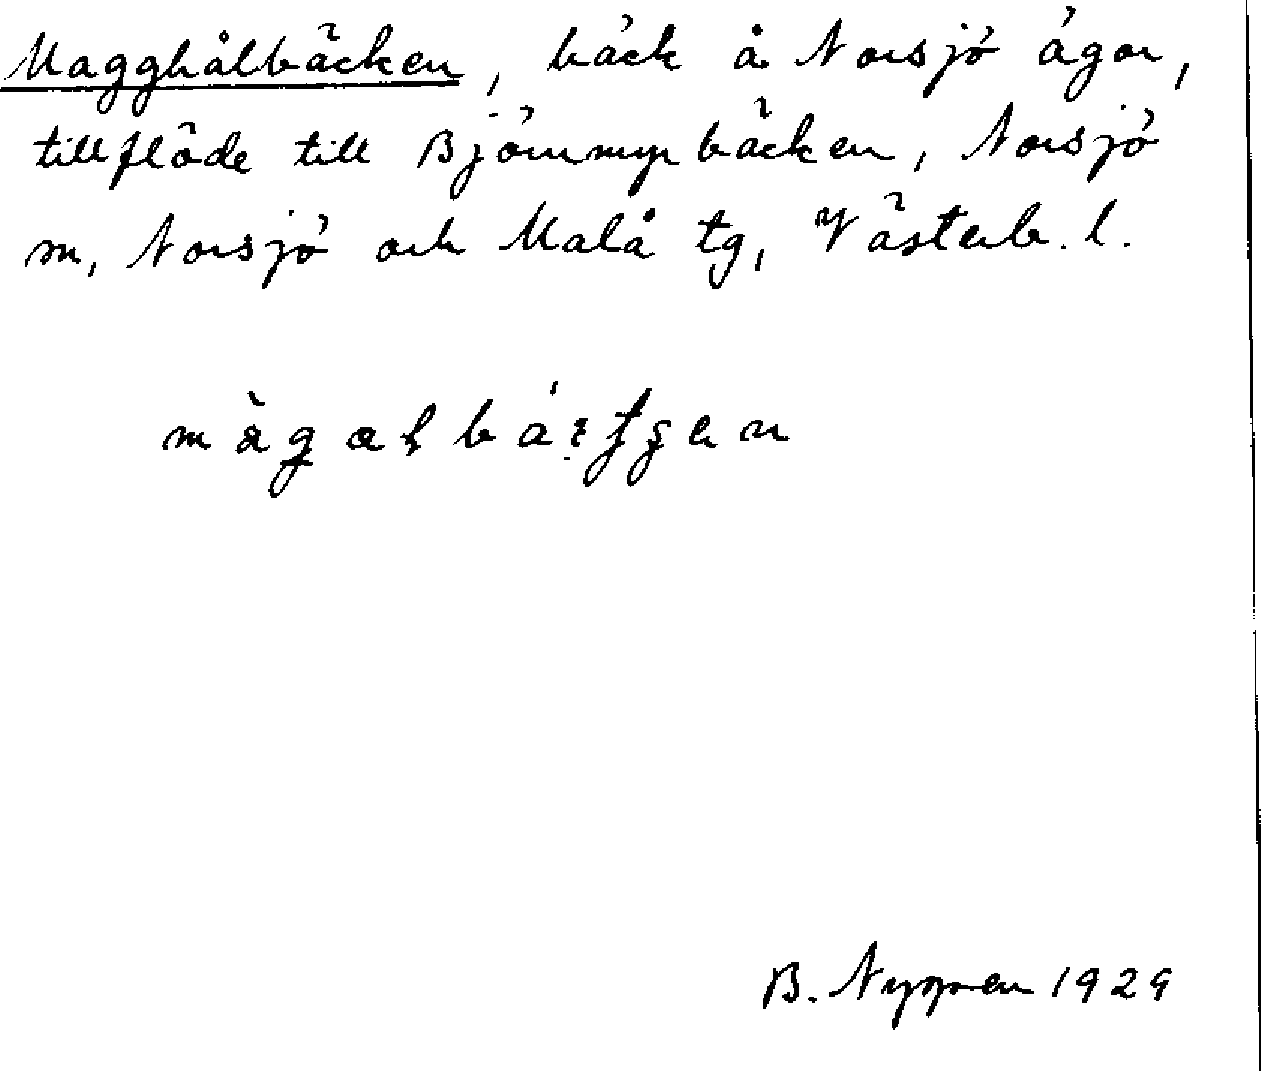 Magghålbäcken, bäck å Norsjö ägor,
tillflöde till Björnmyrbäcken, Norsjö
sn, Norsjö och Malå tg, Västerb. l.
B. Nyman 1929